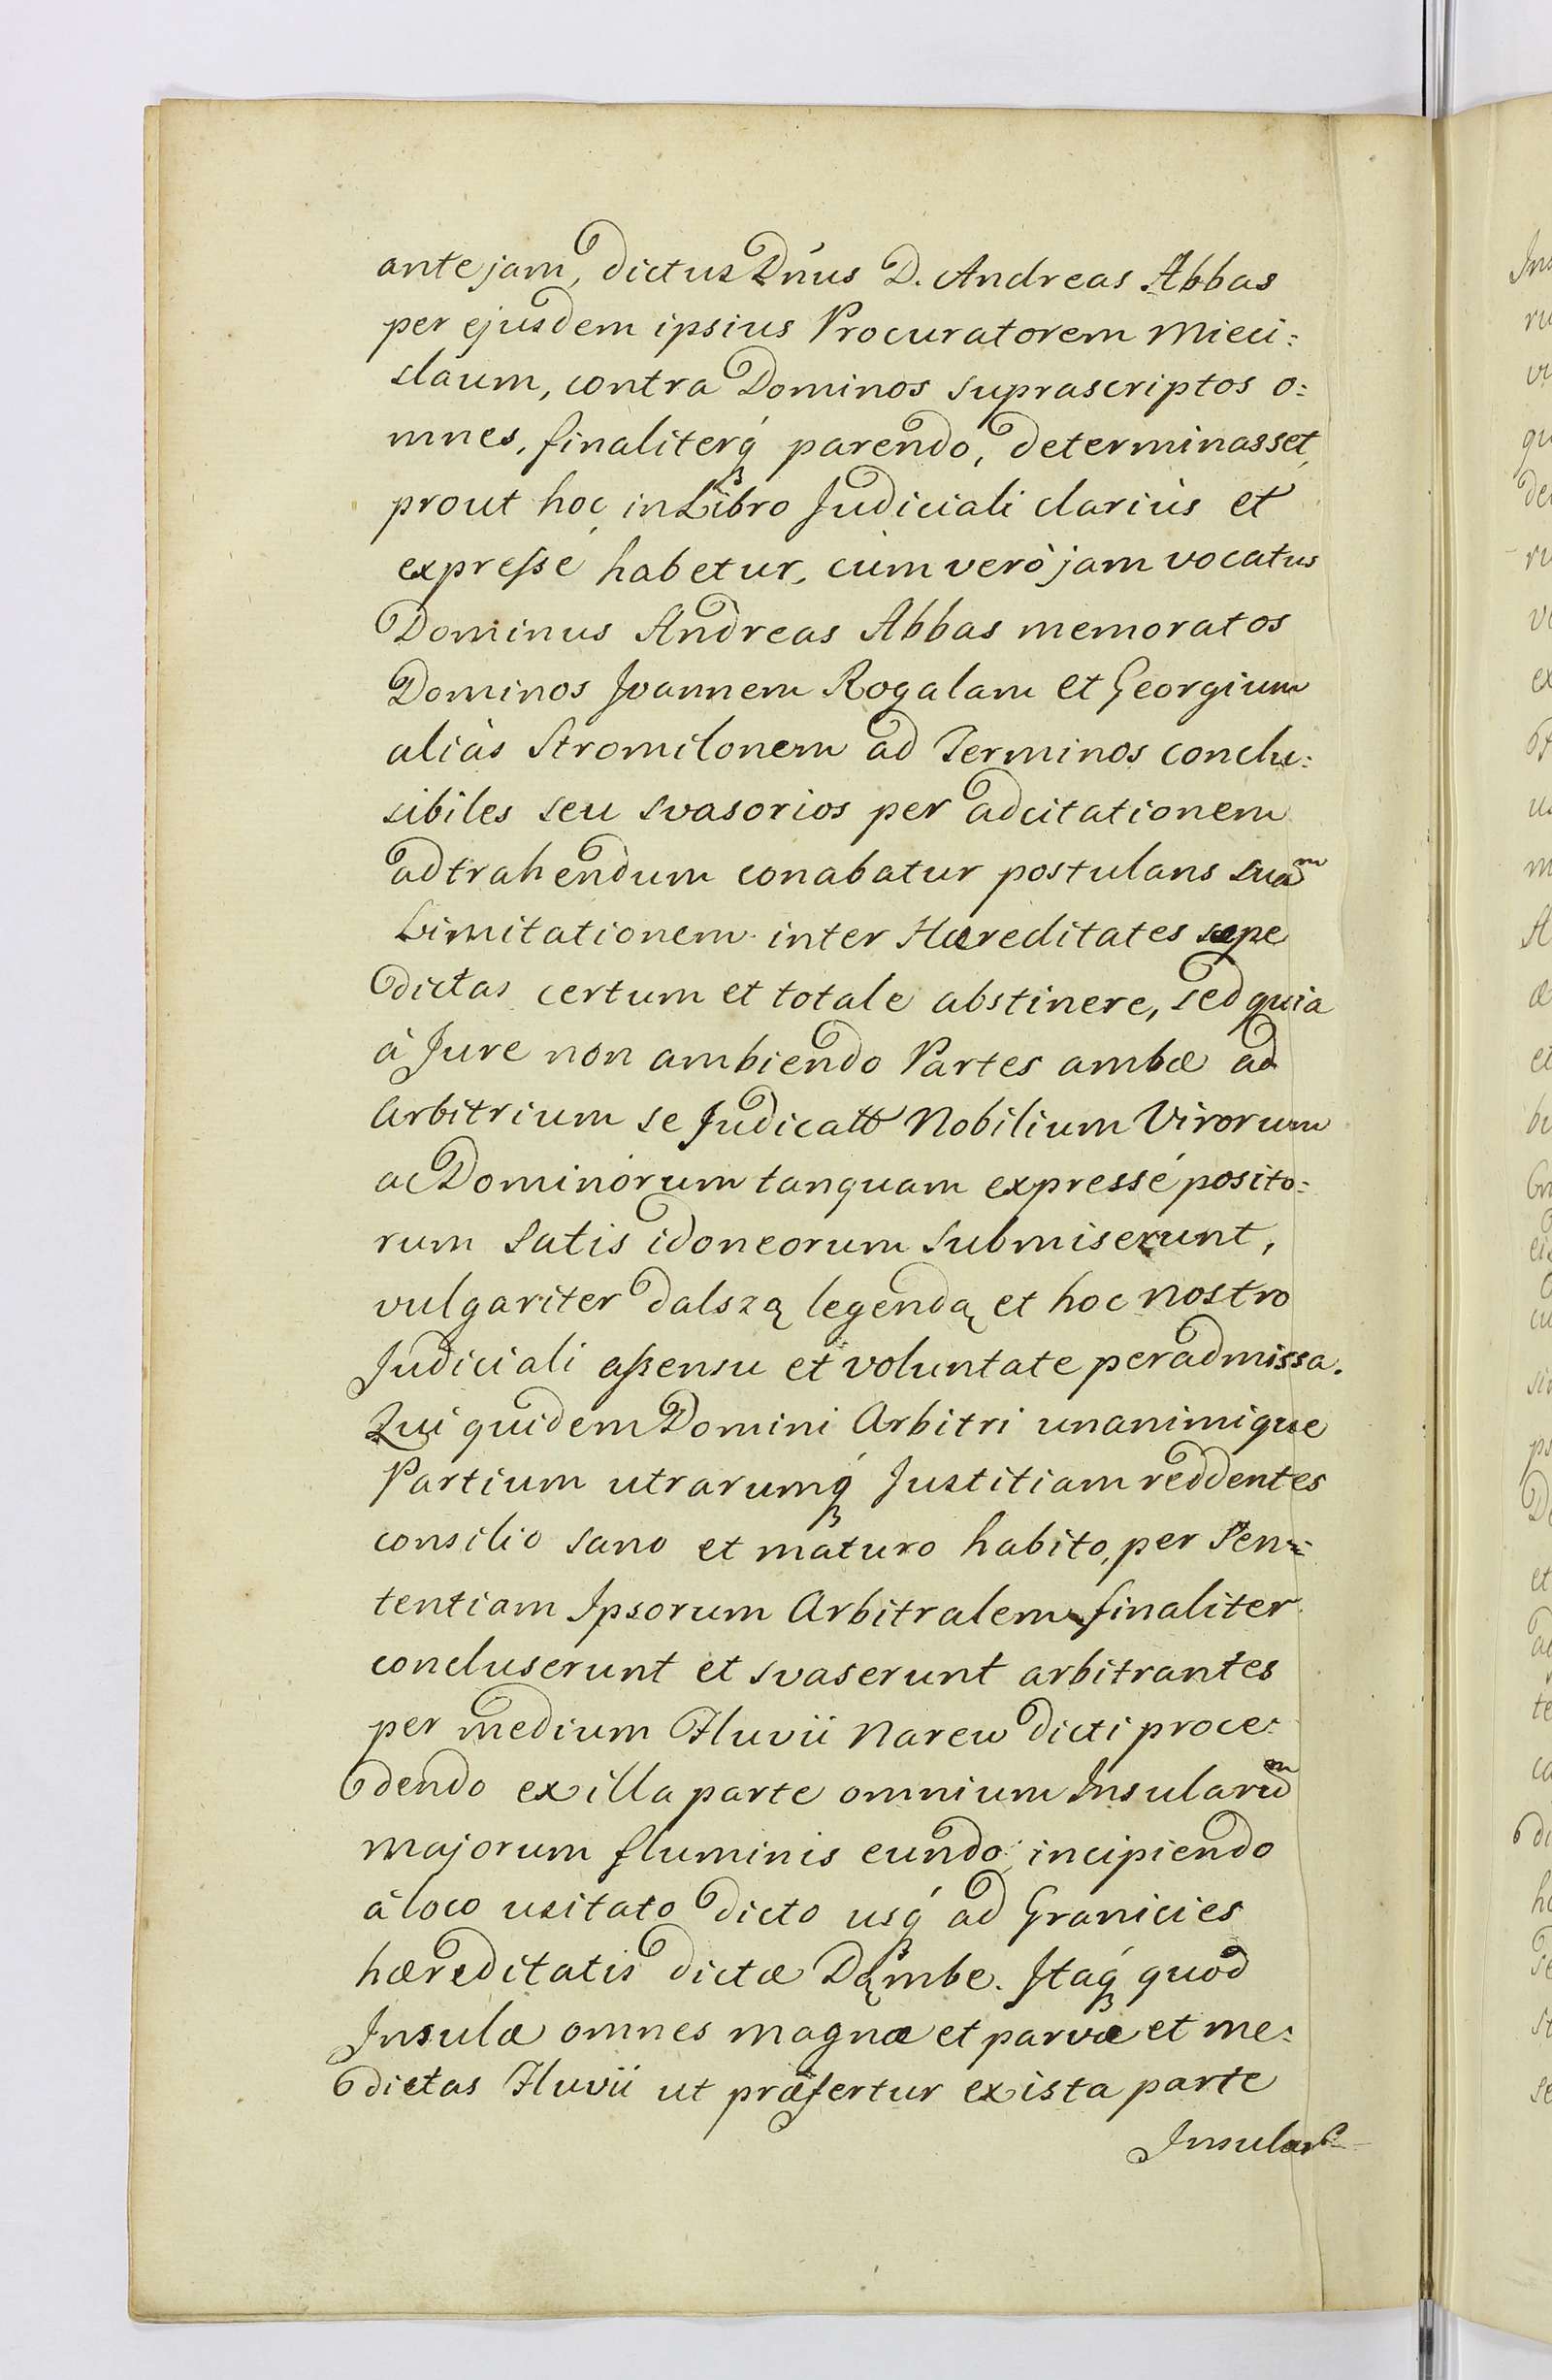 ante jam, dictus Dn̄us D. Andreas Abbas
per ejusdem ipsius Procuratorem Mieci:
slaum, contra Dominos suprascriptos o:
mnes, finaliterq́ parendo, determinasset,
prout hoc in Libro Judiciali clariùs et
expreſsé habetur, cùm verò jam vocatus
Dominus Andreas Abbas memoratos
Dominos Joannem Rogalam et Georgium
aliàs Stromilonem ad Terminos conclu:
sibiles seu svasorios per adcitationem
adtrahendum conabatur postulans suaᵐ
Limitationem inter Hæreditates sæpe
dictas certum et totale abstinere, sed quia
à Jure non ambiendo Partes ambæ ad
Arbitrium se Judicatt Nobilium Virorum
ac Dominorum tanquam expressé posito:
rum satis idoneorum submiserunt,
vulgariter dalszą legendą et hoc nostro
Judiciali aſsensu et voluntate peradmissa.
Qui quidem Domini Arbitri unanimique
Partium utrarumq́ Justitiam reddentes
consilio sano et maturo habito, per Sen:
tentiam Ipsorum Arbitralem finaliter
concluserunt et svaserunt arbitrantes
per medium Fluvii Narew dicti proce:
dendo ex illa parte omnium Insularuᵐ
majorum fluminis eundo incipiendo
à loco usitato dicto usq́ ad Granicies
hæreditatis dictæ Dąmbe. Itaq́ quod
Insulæ omnes magnæ et parvæ et me:
dietas Fluvii ut præfertur ex ista parte